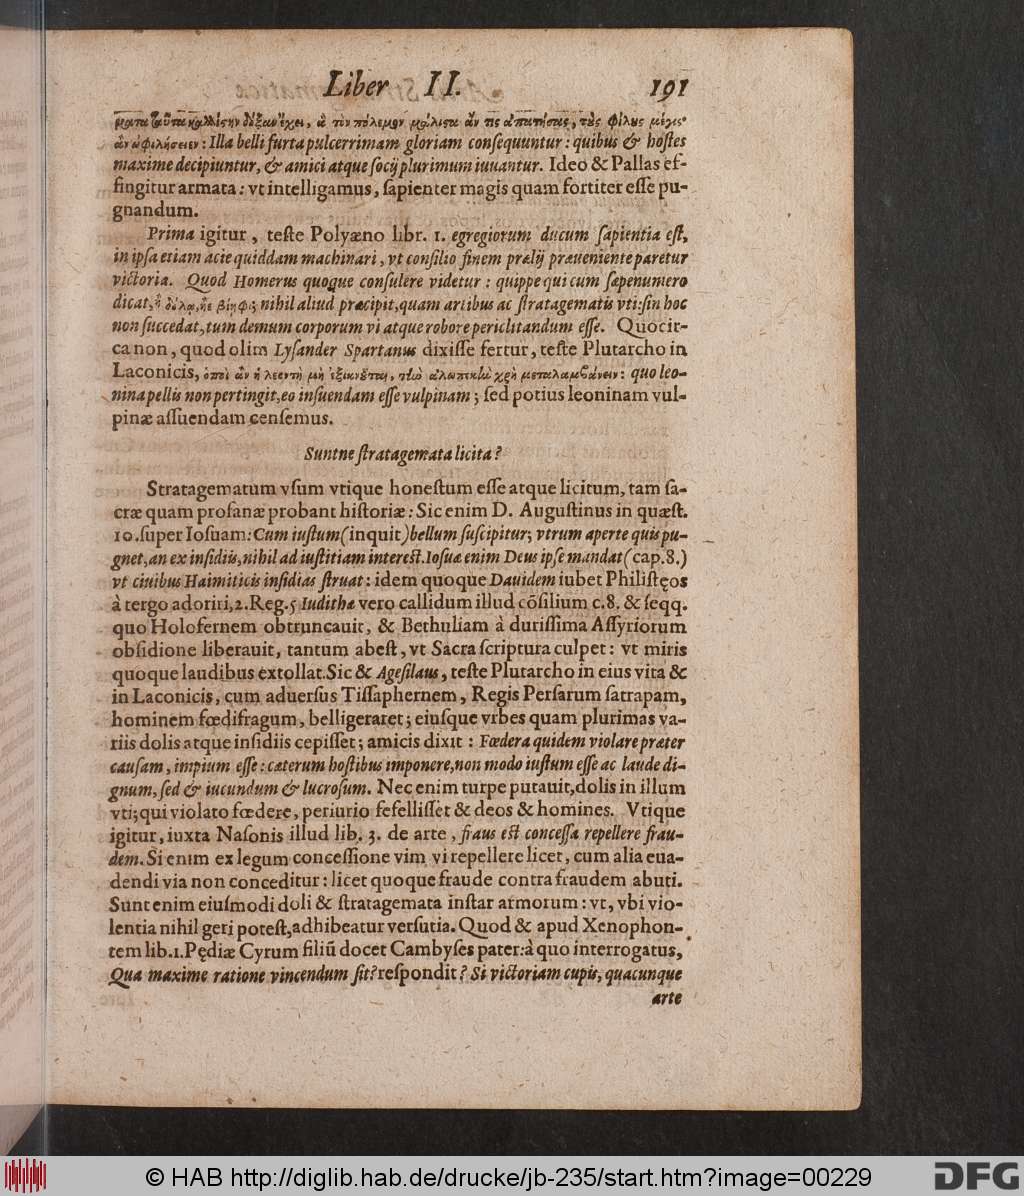 Liber II. 191
ματα ταῦτα καλλίστην δόξαν ἔχει, ἃ τὸν πόλεμον μάλιστα ἄν τις ἀπατήσας, τὺς φίλυς μέγις
ἂν ὠφιλήσειεν: Illa belli furta pulcerrimam gloriam conſequuntur: quibus & hoſtes
maxime decipiuntur, & amici atque ſocij plurimum iuuantur. Ideo & Pallas ef-
fingitur armata: vt intelligamus, ſapienter magis quam fortiter eſſe pu-
gnandum.
Prima igitur, teſte Polyæno libr. 1. egregiorum ducum ſapientia eſt,
in ipſa etiam acie quiddam machinari, vt conſilio finem prælij præueniente paretur
victoria. Quod Homerus quoque conſulere videtur: quippe qui cum ſæpenumero
dicat, ἢ δόλῳ, ἠὲ βίηφι; nihil aliud præcipit, quam artibus ac ſtratagematis vti: ſin hoc
non ſuccedat, tum demum corporum vi atque robore periclitandum eſſe. Quocir-
ca non, quod olim Lyſander Spartanus dixiſſe fertur, teſte Plutarcho in
Laconicis, ὁποὶ ἂν ἡ λεεντὴ μὴ ἐξικνῆται, τἰὼ ἀλωπεκίὼ χρὴ μεταλαμβάνειν: quo leo-
nina pellis non pertingit, eo inſuendam eſſe vulpinam; ſed potius leoninam vul-
pinæ aſſuendam cenſemus.
Suntne ſtratagemata licita?
Stratagematum vſum vtique honeſtum eſſe atque licitum, tam ſa-
cræ quam profanæ probant hiſtoriæ: Sic enim D. Auguſtinus in quæſt.
10. ſuper Ioſuam: Cum iuſtum (inquit) bellum ſuſcipitur; vtrum aperte quis pu-
gnet, an ex inſidiis, nihil ad iuſtitiam intereſt. Ioſuæ enim Deus ipſe mandat (cap. 8.)
vt ciuibus Haimiticis inſidias ſtruat: idem quoque Dauidem iubet Philiſtęos
à tergo adoriri, 2. Reg. 5 Iudithæ vero callidum illud cõſilium c. 8. & ſeqq.
quo Holofernem obtruncauit, & Bethuliam à duriſſima Aſſyriorum
obſidione liberauit, tantum abeſt, vt Sacra ſcriptura culpet: vt miris
quoque laudibus extollat. Sic & Ageſilaus, teſte Plutarcho in eius vita &
in Laconicis, cum aduerſus Tiſſaphernem, Regis Perſarum ſatrapam,
hominem fœdifragum, belligeraret; eiuſque vrbes quam plurimas va-
riis dolis atque inſidiis cepiſſet; amicis dixit: Fœdera quidem violare præter
cauſam, impium eſſe: cæterum hoſtibus imponere, non modo iuſtum eſſe ac laude di-
gnum, ſed & iucundum & lucroſum. Nec enim turpe putauit, dolis in illum
vti; qui violato fœdere, periurio fefelliſſet & deos & homines. Vtique
igitur, iuxta Naſonis illud lib. 3. de arte, fraus eſt conceſſa repellere frau-
dem. Si enim ex legum conceſſione vim vi repellere licet, cum alia eua-
dendi via non conceditur: licet quoque fraude contra fraudem abuti.
Sunt enim eiuſmodi doli & ſtratagemata inſtar armorum: vt, vbi vio-
lentia nihil geri poteſt, adhibeatur verſutia. Quod & apud Xenophon-
tem lib. 1. Pędiæ Cyrum filiũ docet Cambyſes pater: à quo interrogatus,
Qua maxime ratione vincendum ſit? reſpondit? Si victoriam cupis, quacunque
arte
© HAB http://diglib.hab.de/drucke/jb-235/start.htm?image=00229
DFG